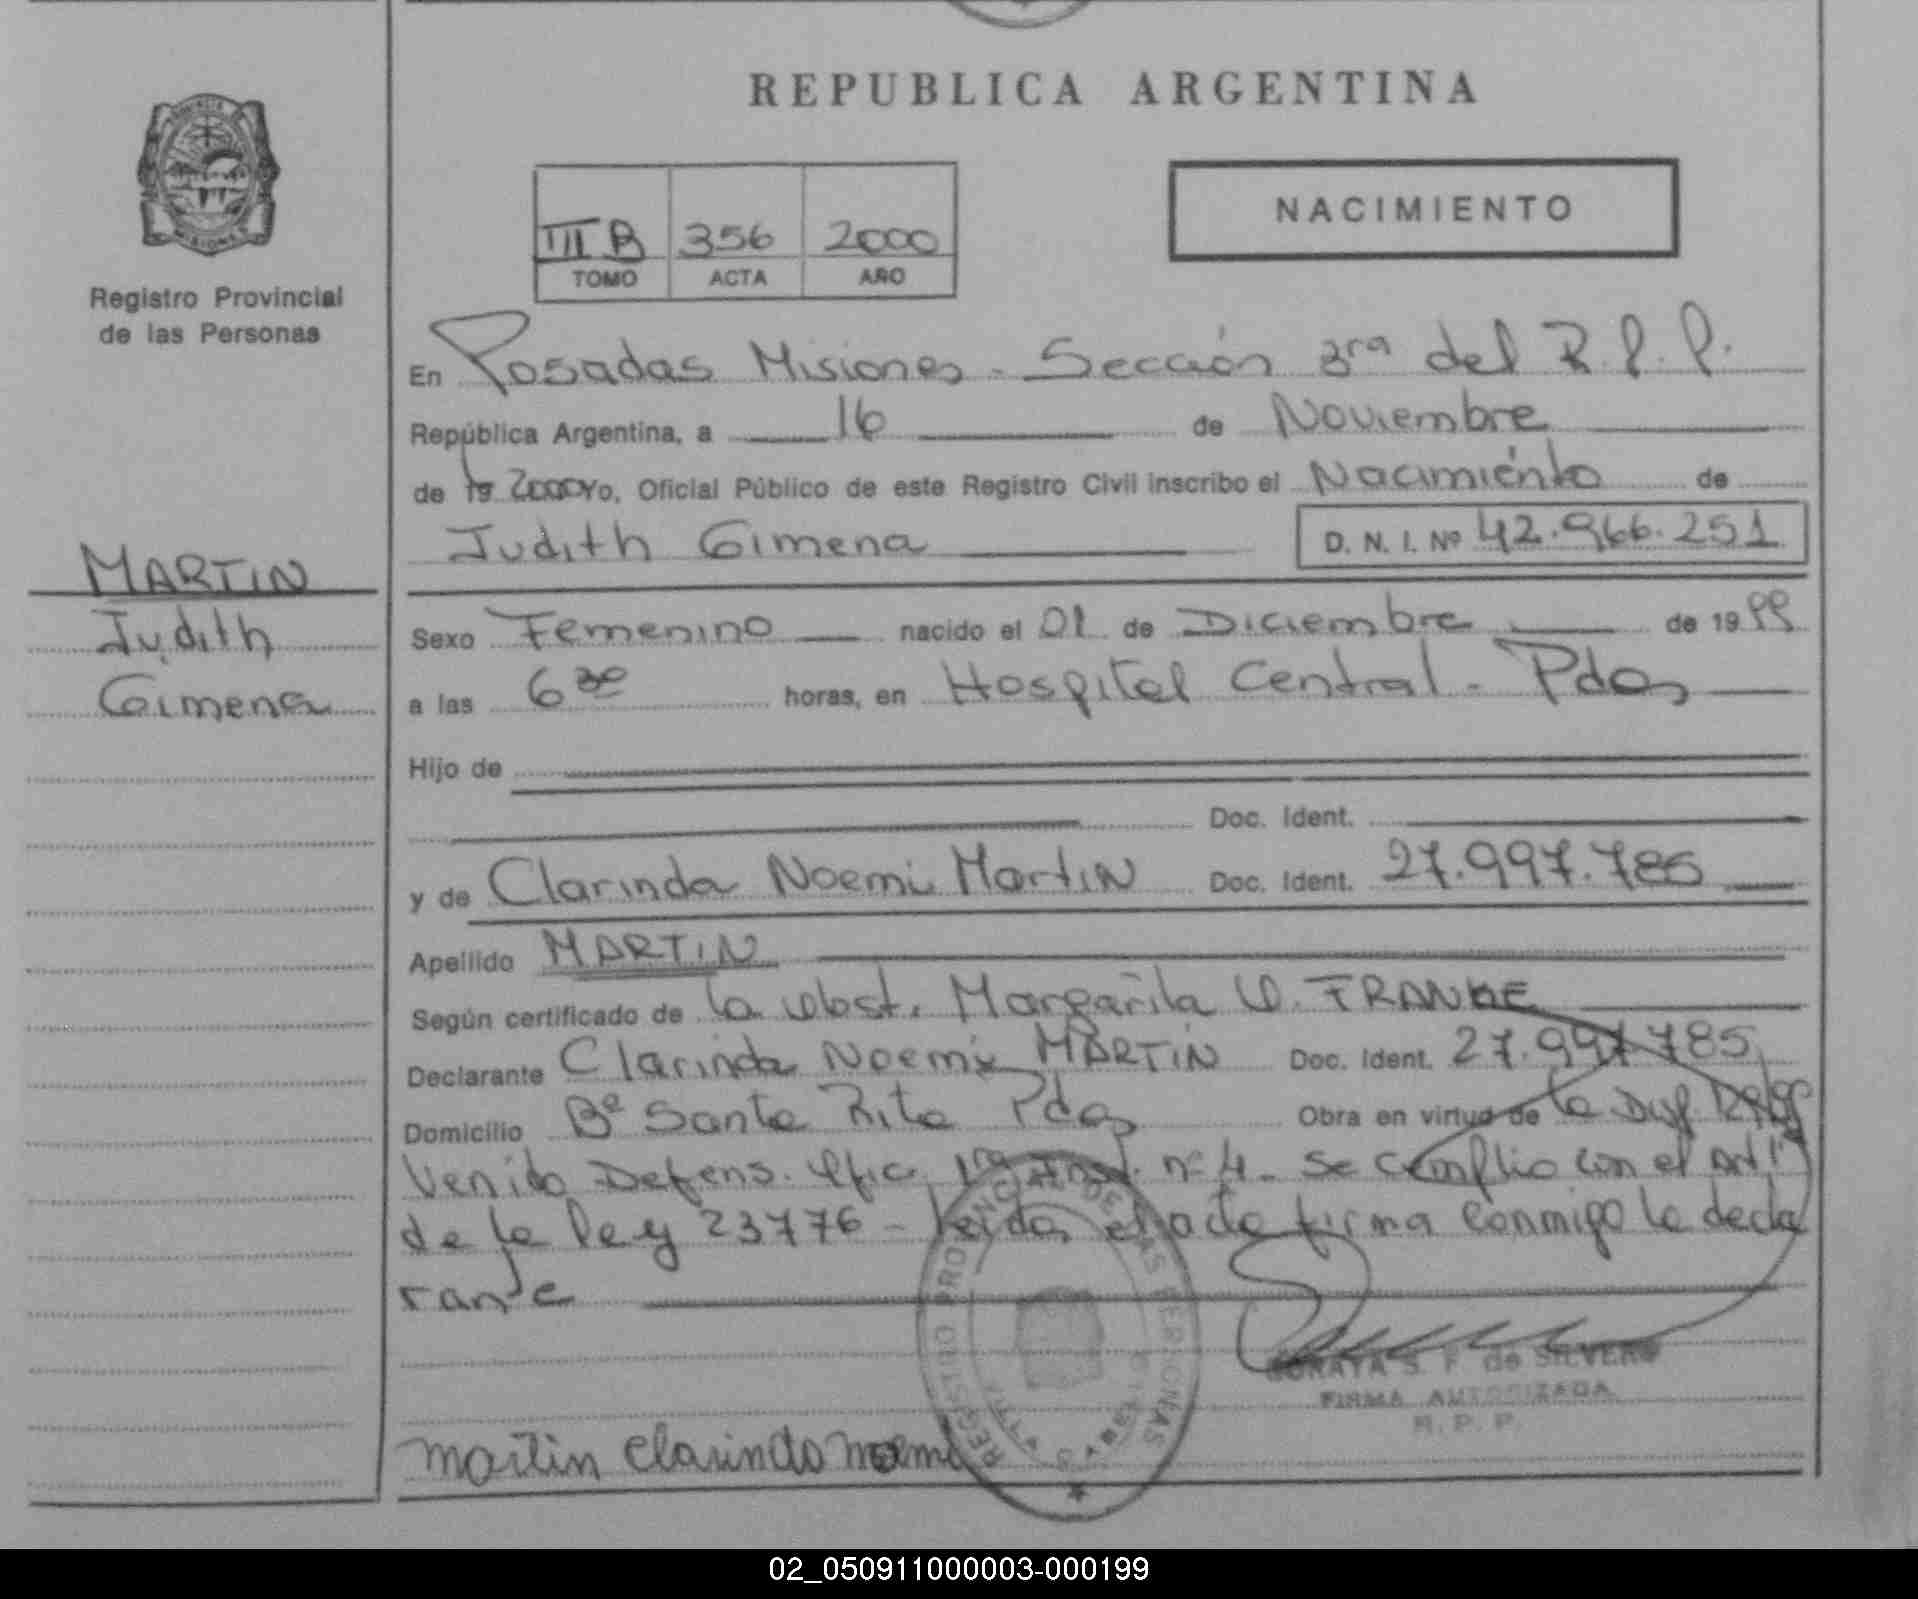 REPUBLICA ARGENTINA
MISIONES
Registro Provincial
de las Personas
III B 356 2000
TOMO ACTA AÑO
NACIMIENTO
En Posadas Misiones - Sección 3ra del R.P.P.
República Argentina, a 16 de Noviembre
de 19 2000 Yo, Oficial Público de este Registro Civil inscribo el Nacimiento de
Judith Gimena D. N. I. Nº 42.966.251
MARTIN
Judith
Gimena
Sexo Femenino nacido el 01 de Diciembre de 1999
a las 6 30 horas, en Hospital Central - Pdas
Hijo de
Doc. Ident.
y de Clarinda Noemi Martin Doc. Ident. 27.997.785
Apellido MARTIN
Según certificado de la Obst. Margarita FRANKE
Declarante Clarinda Noemi MARTIN Doc. Ident. 27.997.785
Domicilio Bº Santa Rita Pdas Obra en virtud de la
Defens. Ofic. 1ra Inst. nº 4 - Se cumplio con el art 1º
de la Ley 23776 - Leida el acta firma conmigo la decla
rante
REGISTRO PROVINCIAL DE LAS PERSONAS
SORAYA S. F. de SILVERO
FIRMA AUTORIZADA
R. P. P.
Martin Clarinda Noemi
02_050911000003-000199